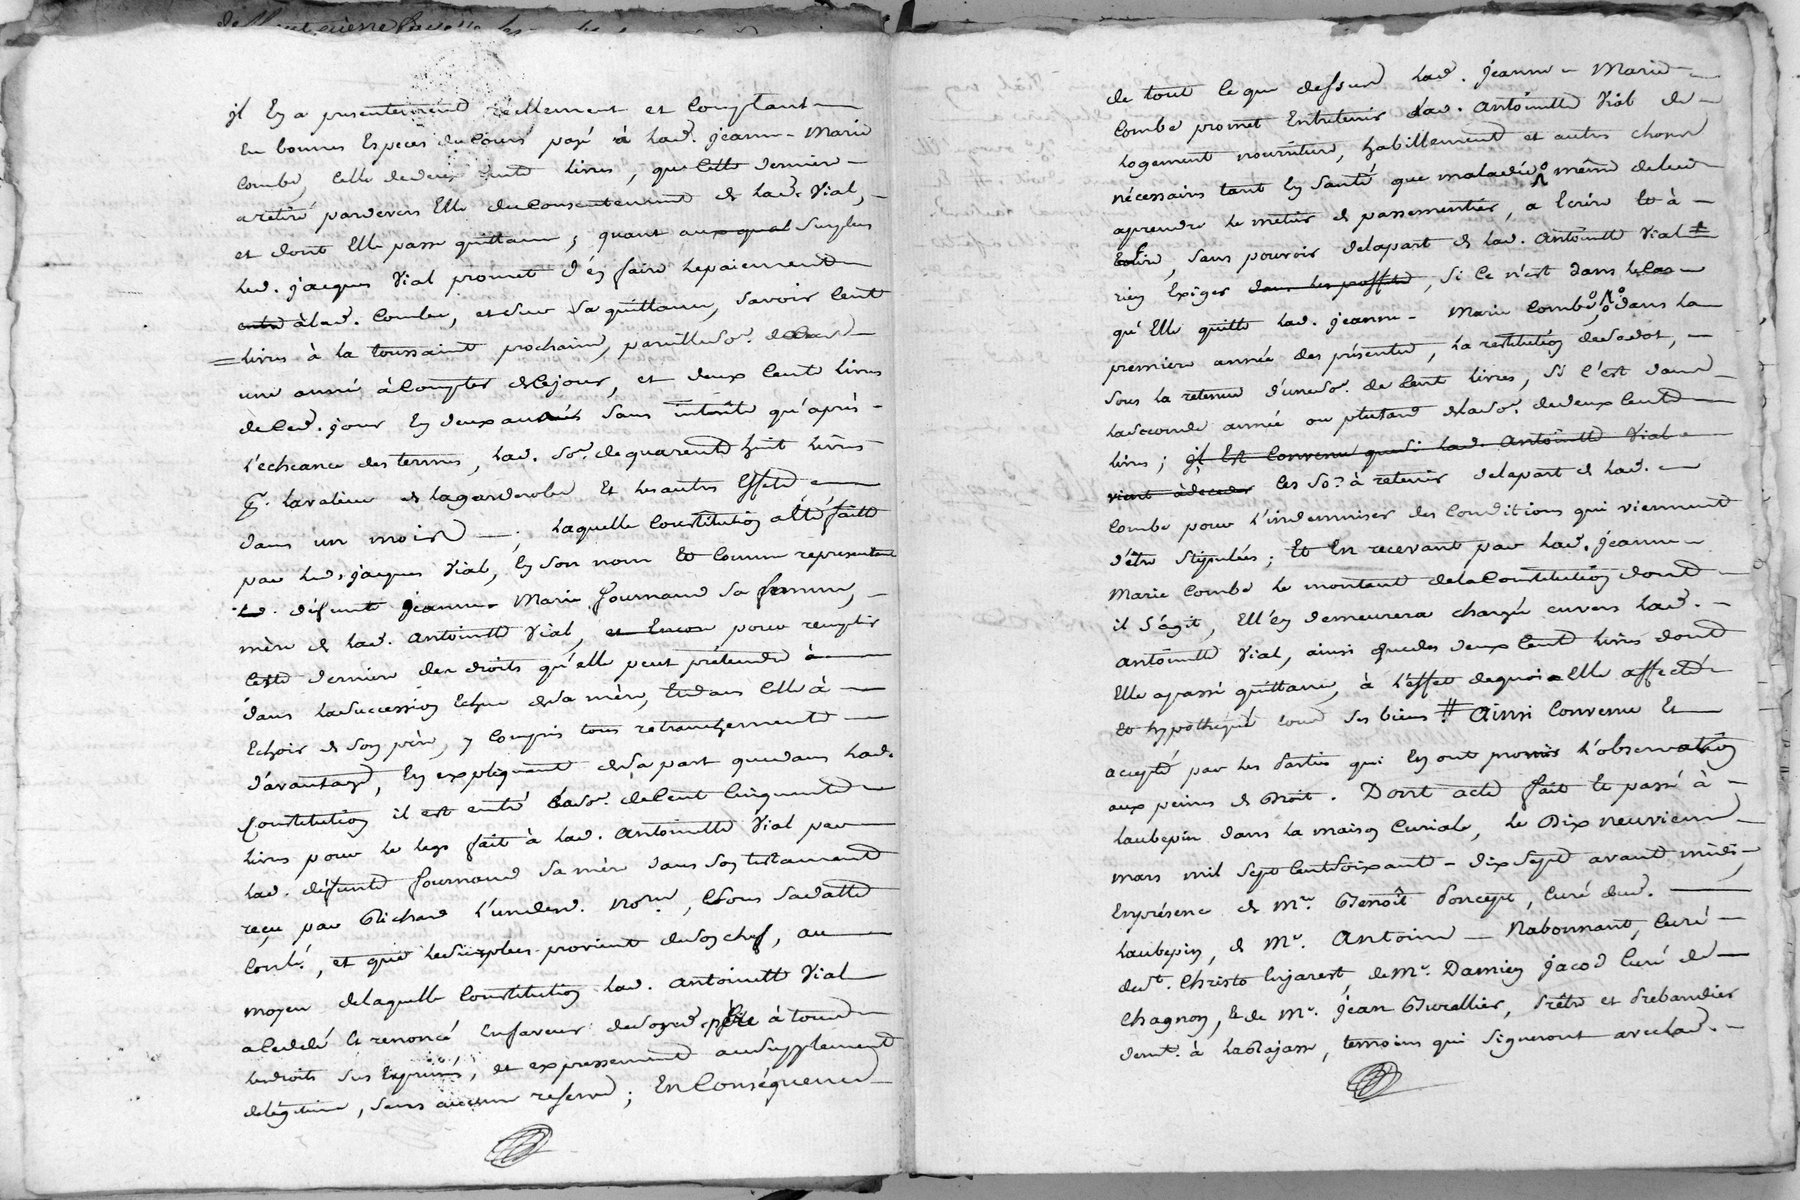 il en a presentement réellement et comptant
en bonnes Especes du Cours payé à lad. jeanne-Marie
Combe, Celle de deux Cents livres, que Cette derniere
a retiré pardevers Elle du Consentement de lad. Vial,
et dont Elle passe quittance ; quant aux qual surplus
led. jacques Vial promet d'en faire le paiement
entre à lad. Combe, et sur sa quittance, savoir Cent
livres à la toussaint prochaine, pareille so.e
une année à Compter de Ce jour, et deux Cent livres
de Ced. jour En deux années sans intérêts qu'après
l'echeance des termes, lad. so.e de quarente huit livres
p.r la valeur de la garderobe Et les autres Effets
dans un mois ; laquelle Constitution a été faitte
par led. jacques Vial, En son nom Et Comme representant
défunte jeanne Marie fournand sa femme,
mère de lad. Antoinette Vial, et Encore pour remplir
Cette derniere des droits qu'elle peut prétendre à
dans la succession Echue de sa mère, Et dans Celle à
Echoir de son père, y Compris tous retranchements
d'avantage, En expliquant de sa part que dans lad.
Constitution il est entré la so.e de Cent Cinquante
livres pour le legs fait à lad. Antoinette Vial par
lad. défunte fournand sa mère dans son testament
reçu par Richard l'un des d. No.res, Et sous sa datte
Conl.é, et que le surplus provient de son chef, au
moyen de laquelle Constitution lad. Antoinette Vial
a Cédé et renoncé En faveur de sond. père à tous
les droits sus Exprimés, et expressement au supplement
de légitime, sans aucune reserve ; En Conséquence
de tout Ce que dessus lad. jeanne-Marie
Combe promet Entretenir lad. Antoinette Vial de
logement nourriture, habillement et autres choses
nécessaires tant En Santé que maladie même de lui
aprendre le métier de passementier, a Ecrire et à
Ecrire, sans pouvoir de la part de lad. Antoinette Vial
rien Exiger dans les , si Ce n'est dans le Cas
qu'Elle quitte lad. jeanne-Marie Combe, dans la
premiere année des présentes, la restitution de sa dot,
sous la retenue d'une so.e de Cent livres, si C'est dans
la seconde année ou plustard de la so.e de deux Cents
livres ; il Est Convenu que si lad. Antoinette Vial
vient à deceder les so.es à retenir de la part de lad.
Combe pour l'indemniser des Conditions qui viennent
d'être stipulées ; Et En recevant par lad. jeanne
Marie Combe le montant de la Constitution dont
il s'agit, Ell'en demeurera chargée envers lad.
Antoinette Vial, ainsi que des deux Cent livres dont
Elle a passé quittance, à l'effet de quoi Elle affecte
et hypotheque tous ses biens # Ainsi Convenu Et
accepté par les Parties qui En ont promis l'observation
aux peines de Droit. Dont acte fait Et passé à
laubepin dans la maison Curiale, le Dix neuvieme
mars mil sept Cent soixante-dix sept avant midi,
En présence de M.re Benoît Poncept, Curé dud.
laubepin, de M.e Antoine Rabonnant, Curé
de s.t Christo Enjarest, de M.e Damien jacod Curé de
Chagnon, Et de M.e jean Burellier, Prêtre et Prebandier
dem.t à la Rajasse, temoins qui signeront avec lad.